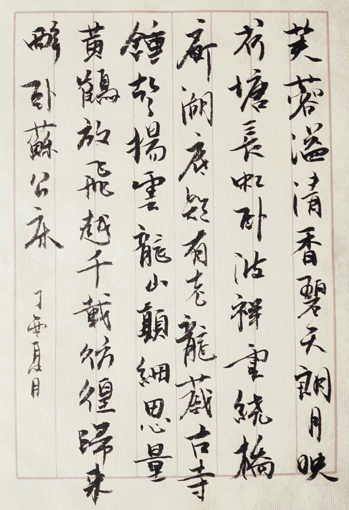 芙蓉溢清香碧天朗月映
荷塘長虹卧波祥雲繞橋
廊湖底疑有老龍藏古寺
鍾声揚雲龍山顛細思量
黄鶴放飛越千載彷徨歸来
醉卧蘇公床
丁酉夏月